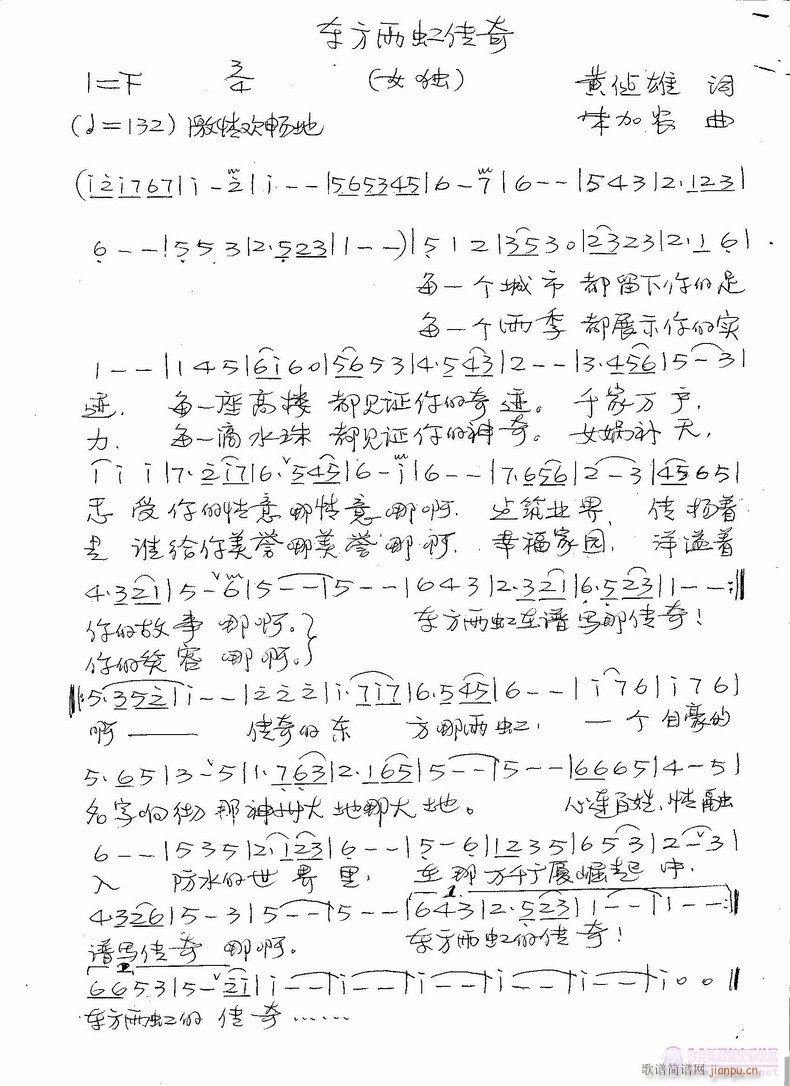 东方雨虹传奇
1=F 3/4 (女独) 黄 雄 词
(♩=132) 激情欢畅地 朱加农 曲
(i̇ 2̇ i̇ 7 6 7 | i̇ - 2̇ | i̇ - - | 5 6 5 3 4 5 | 6 - 7 | 6 - - | 5 4 3 | 2· 1 2 3 |
6 - - | 5 5 3 | 2· 5 2 3 | 1 - - ) | 5 1 2 | 3 5 3 0 | 2 3 2 3 | 2· 1 6 |
每一个城市 都留下你的足
每一个雨季 都展示你的实
1 - - | 1 4 5 | 6 i̇ 6 0 | 5 6 5 3 | 4· 5 4 3 | 2 - - | 3· 4 5 6 | 5 - 3 |
迹, 每一座高楼 都见证你的奇迹。 千家万户,
力, 每一滴水珠 都见证你的神奇。 女娲补天,
i̇ i̇ i̇ | 7· 2̇ i̇ 7 | 6· 5 4 5 | 6 - i̇ | 6 - - | 7· 6 5 6 | 2 - 3 | 4 5 6 5 |
受你的情意哪情意哪啊, 点筑世界, 传扬着
是谁给你美誉哪美誉哪啊, 幸福家园, 洋溢着
4· 3 2 1 | 5 - 6 | 5 - - | 5 - - | 6 4 3 | 2· 3 2 1 | 6· 5 2 3 | 1 - - :||
你的故事哪啊。 东方雨虹在谱写那传奇!
你的笑容哪啊。
||: 5· 3 5 2̇ | i̇ - - | 2̇ 2̇ 2̇ | i̇· 7 i̇ 7 | 6· 5 4 5 | 6 - - | i̇ 7 6 | i̇ 7 6 |
啊—— 传奇的东 方哪雨虹, 一个自豪的
5· 6 5 | 3 - 5 | 1· 7 6 3 | 2· 1 6 5 | 5 - - | 5 - - | 6 6 6 5 | 4 - 5 |
名字响彻那神州大地哪大地。 心连百姓,情融
6 - - | 5 3 5 | 2· 1 2 3 | 6 - - | 5 - 6 | 1 2 3 5 | 6 5 3 | 2 - 3 |
入 防水的世界里, 在那万千广厦崛起中,
4· 3 2 6 | 5 - 3 | 5 - - | 5 - - | 1. 6 4 3 | 2· 5 2 3 | 1 - - | 1 - - :||
谱写传奇哪啊。 东方雨虹的传奇!
2. 6 6 5 3 | 5 - 2̇ i̇ | i̇ - - | i̇ - - | i̇ - - | i̇ - - | i̇ - - | i̇ 0 0 ||
东方雨虹的 传奇……
歌谱简谱网
jianpu.cn